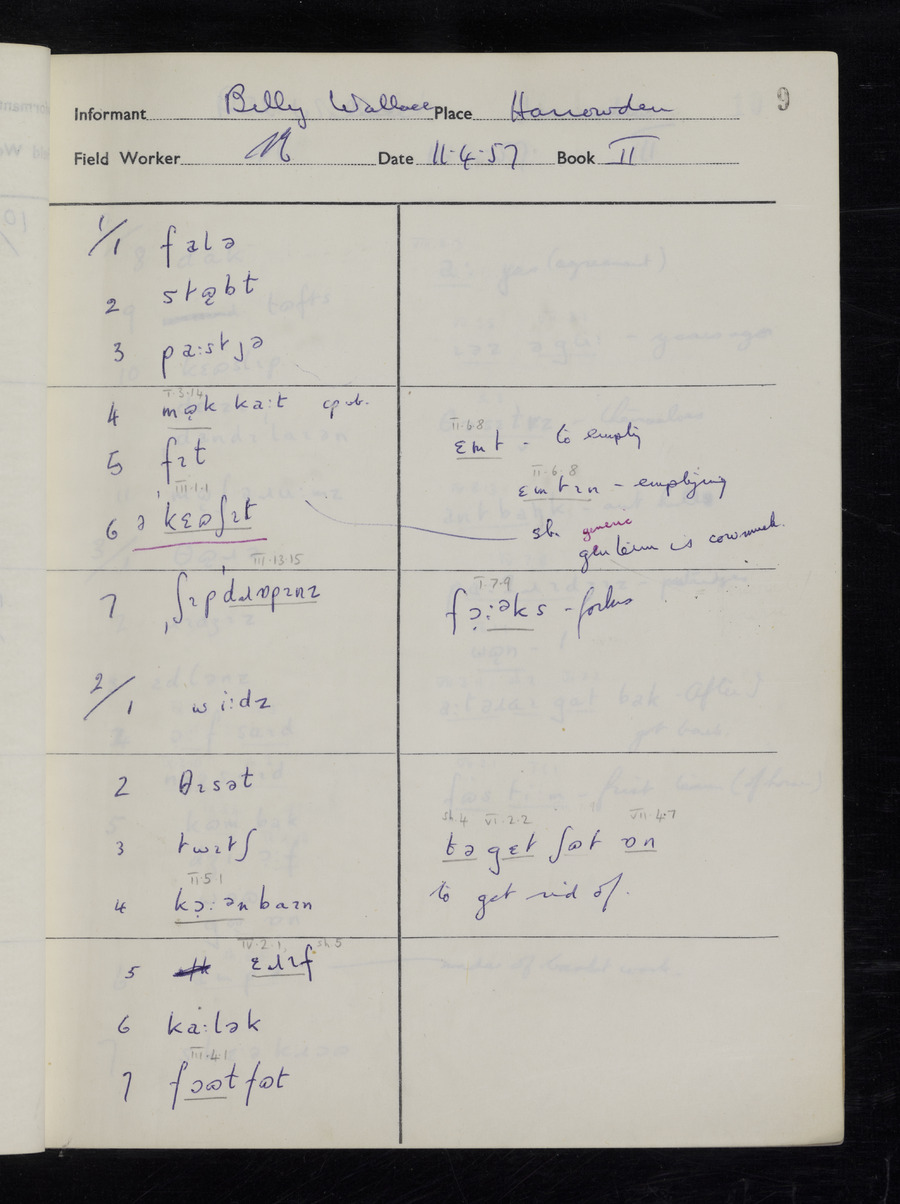 9
Informant Billy Wallace Place Harrowden
Field Worker Date 11.4.57 Book II
1/1 fələ
2 stɵ̞bt
3 pa:stjə
I.3.14
4 mɵ̞k ka:t cp. vb.
5 fɪt
III.1.1
6 ə kɛɷʃɪt
III.13.15
7 ʃɪpdɹɒpɪnz
2/1 wi:dz
2 θɪsət
3 twɪtʃ
II.5.1
4 kɔ̣:ən baɪn
IV.2.1. sh.5
5 ɛɹɪf
6 ka:lək
III.4.1
7 fɔɷtfɷt
II.6.8
ɛmt - to empty
II.6.8
ɛmtɪn - emptying
sh. generic
gen term is cowmuck.
I.7.9
fɔ̣:əks - forks
sh.4 VI.2.2 VII.4.7
tə gɛt ʃɷt ɒn
to get rid of.